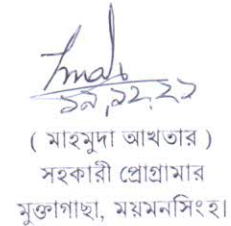 ১৯.১২.২১
( মাহমুদা আখতার )
সহকারী প্রোগ্রামার
মুক্তাগাছা, ময়মনসিংহ।